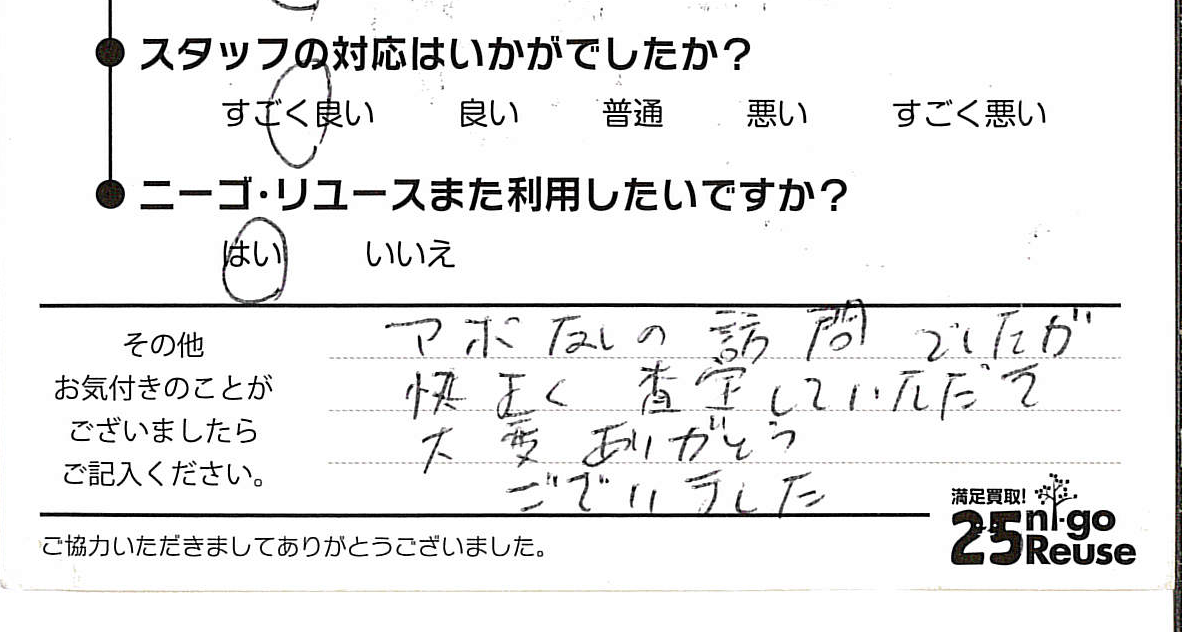 スタッフの対応はいかがでしたか？
すごく良い 良い 普通 悪い すごく悪い
ニーゴ・リユースまた利用したいですか？
はい いいえ
その他
お気付きのことが
ございましたら
ご記入ください。
アポなしの訪問でしたが
快よく査定していただて
大変ありがとう
ございました
満足買取!
25 ni-go
Reuse
ご協力いただきましてありがとうございました。